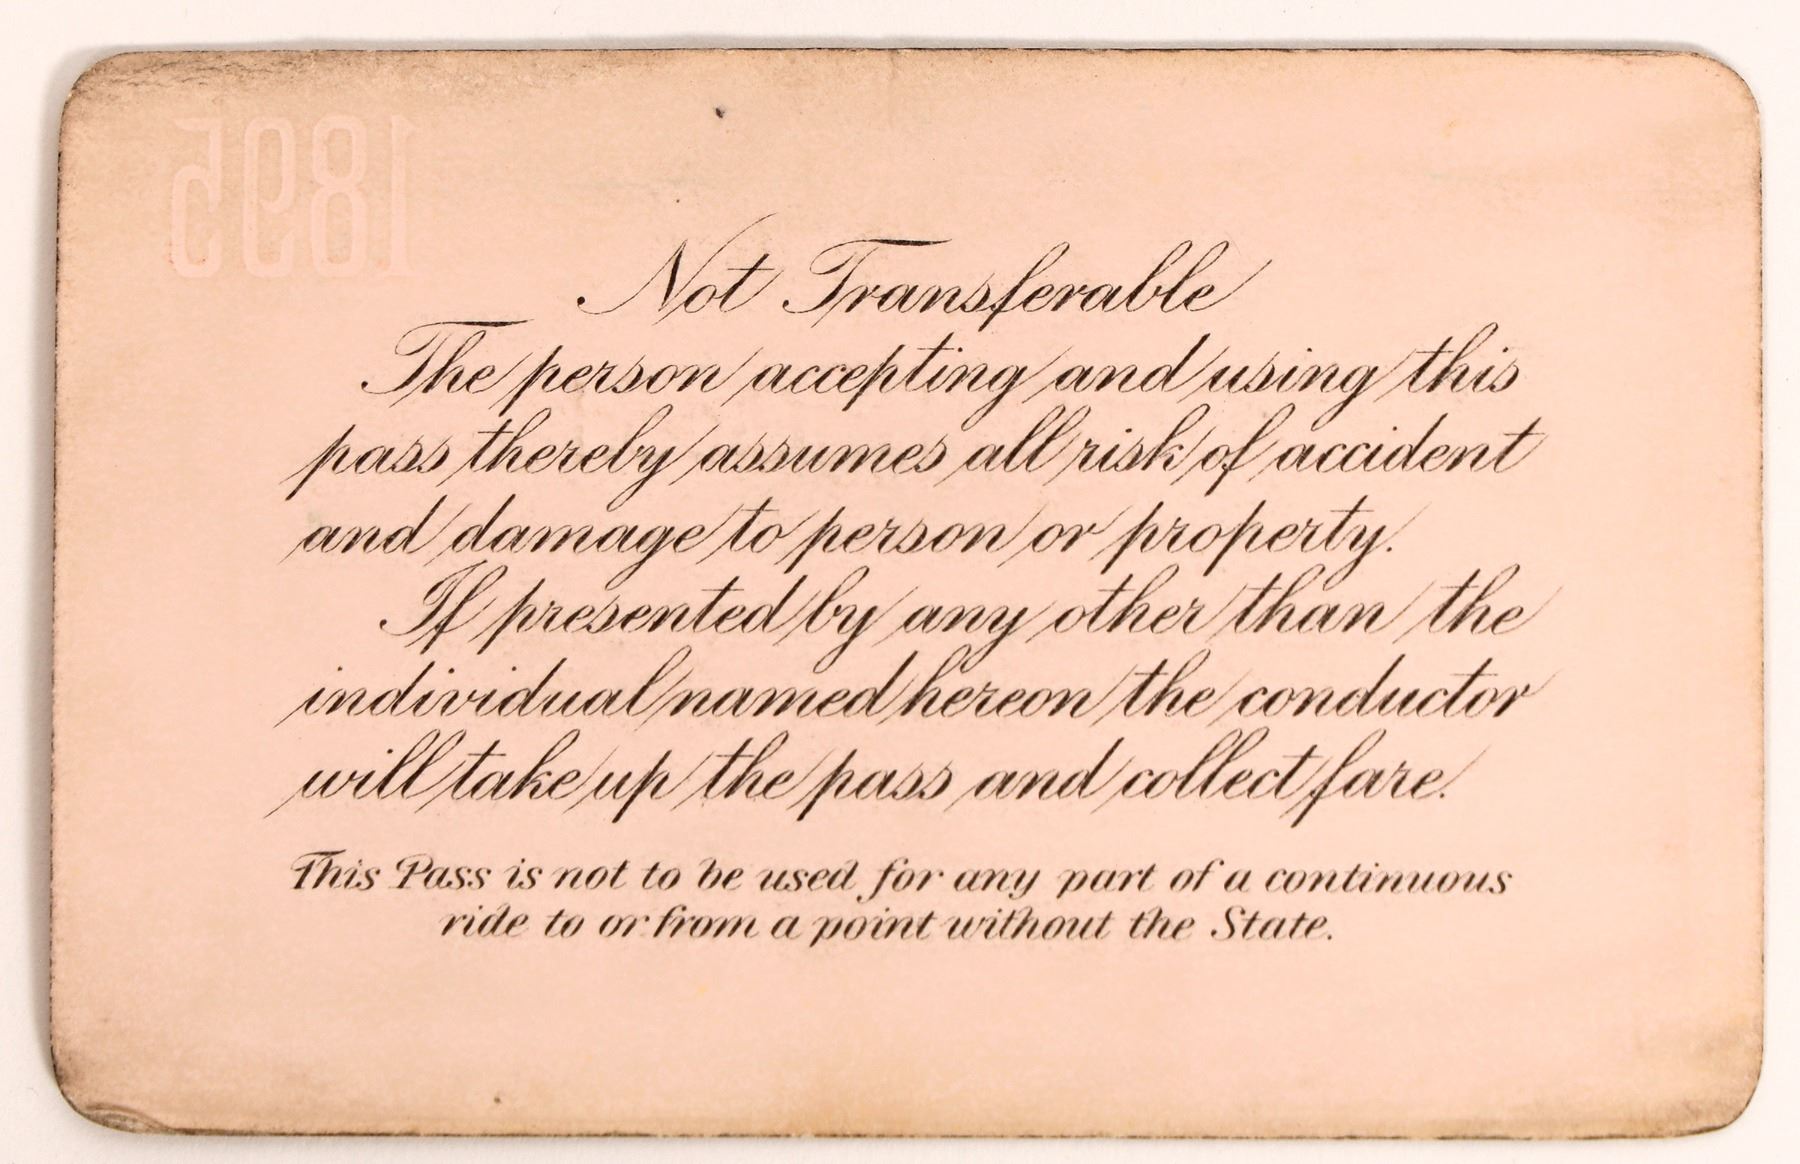 1895
Not Transferable
The person accepting and using this
pass thereby assumes all risk of accident
and damage to person or property.
If presented by any other than the
individual named hereon the conductor
will take up the pass and collect fare.
This Pass is not to be used for any part of a continuous
ride to or from a point without the State.